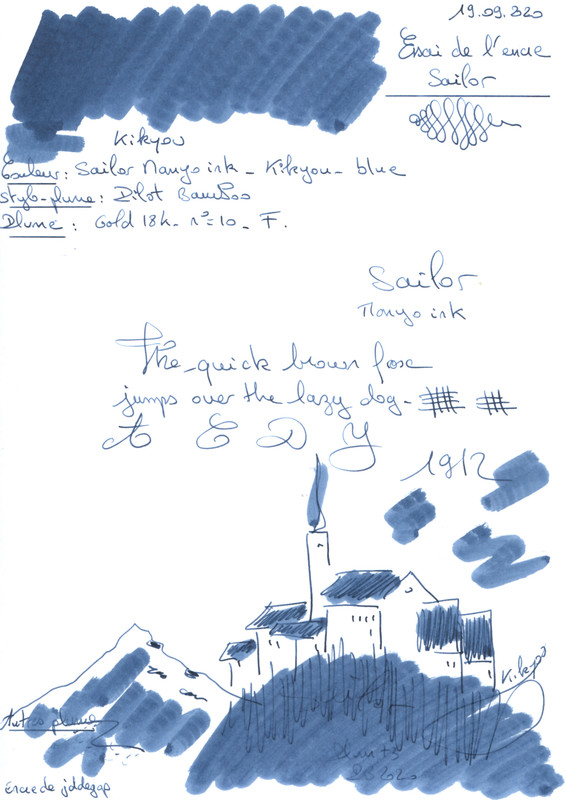 19.09.2020
Essai de l'encre
Sailor
Kikyou
Couleur : Sailor Manyo ink - Kikyou - blue
Stylo-plume : Pilot Bamboo
Plume : Gold 18k - n°=10 - F.
Sailor
Manyo ink
The quick brown foxe
jumps over the lazy dog -
A E D Y
1912
Autres plume
2020
Encre de jddegap